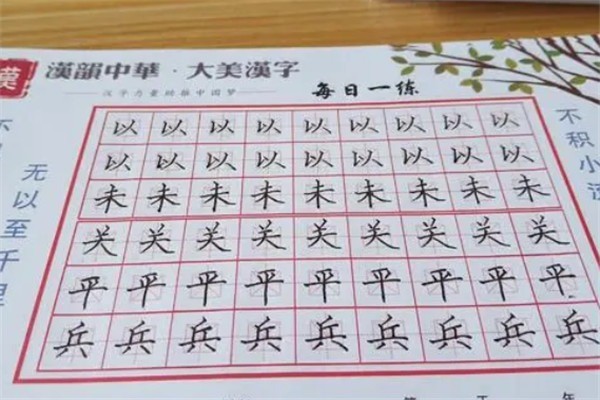 漢
漢韻中華·大美漢字
汉字力量助推中国梦
每日一练
以以以以以以以以以
以以以以以以以以以
未未未未未未未未未
关关关关关关关关关
平平平平平平平平平
兵兵兵兵兵兵兵兵兵
无以至千里
不积小流